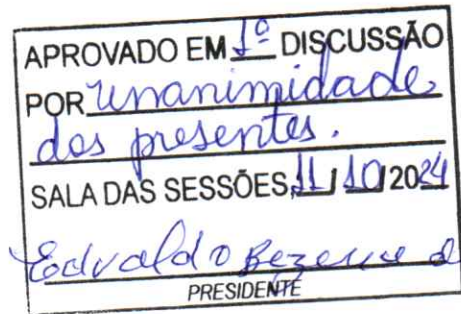 APROVADO EM 1º DISCUSSÃO
POR unanimidade
dos presentes.
SALA DAS SESSÕES, 11/10/2024
Edvaldo Bezerra d
PRESIDENTE